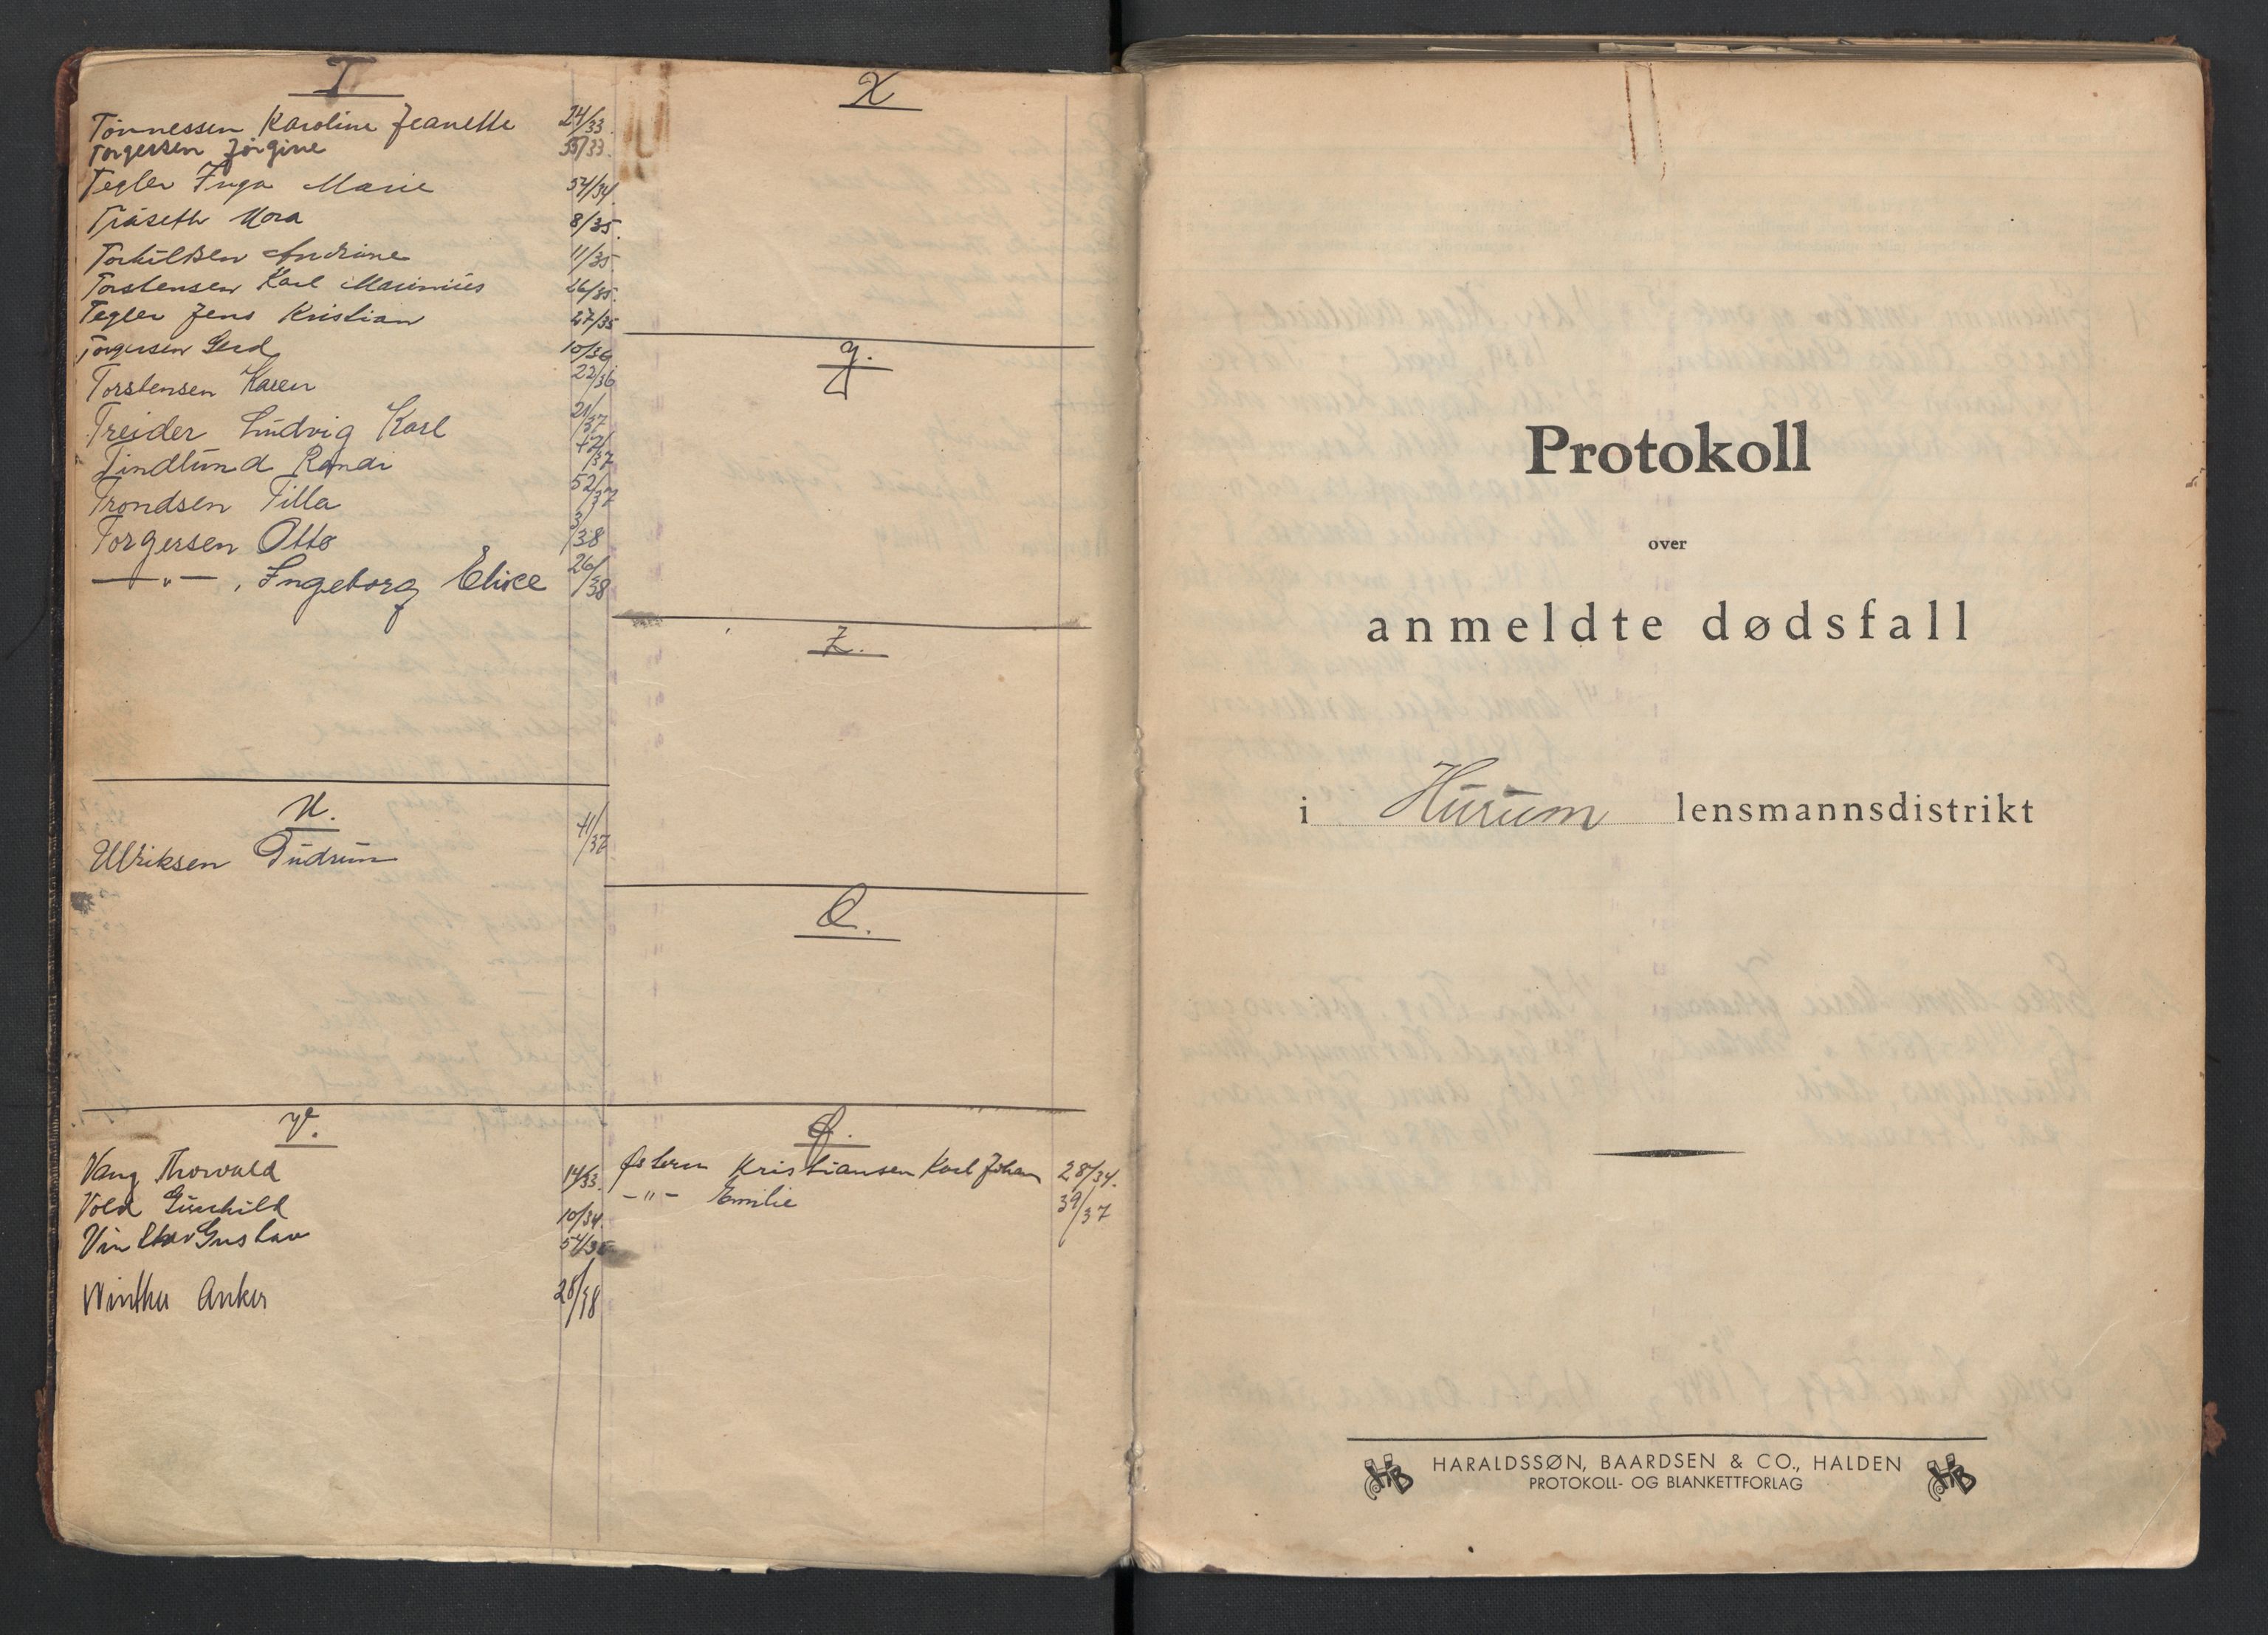 T
Tönnessen Karoline Jeanette 24/33.
Torgersen Jörgine 35/33.
Tegler Inga Marie 54/34.
Tråseth Nora 8/35.
Torkildsen Andrine 11/35.
Torstensen Karl Marinius 26/35.
Tegler Jens Kristian 27/35
Torgersen Gerd 10/36
Torstensen Karen 22/36
Treider Ludvig Karl 21/37
Tindlund Randi 42/37
Trondsen Tilla 52/37
Torgersen Otto 3/38
—„— , Ingeborg Elise 26/38
U.
Ulriksen Gudrun 41/37
V.
Vang Thorvald 14/33.
Vold Gunhild 10/34.
Vinther Gustav 54/35
Winther Anker 28/38
X
Y.
Z.
Q.
Ø.
Østern Kristiansen Karl Johan 28/34.
-"- Emilie 39/37
Protokoll
over
anmeldte dødsfall
i Hurum lensmannsdistrikt
HARALDSSØN, BAARDSEN & CO., HALDEN
PROTOKOLL- OG BLANKETTFORLAG
HB
HB